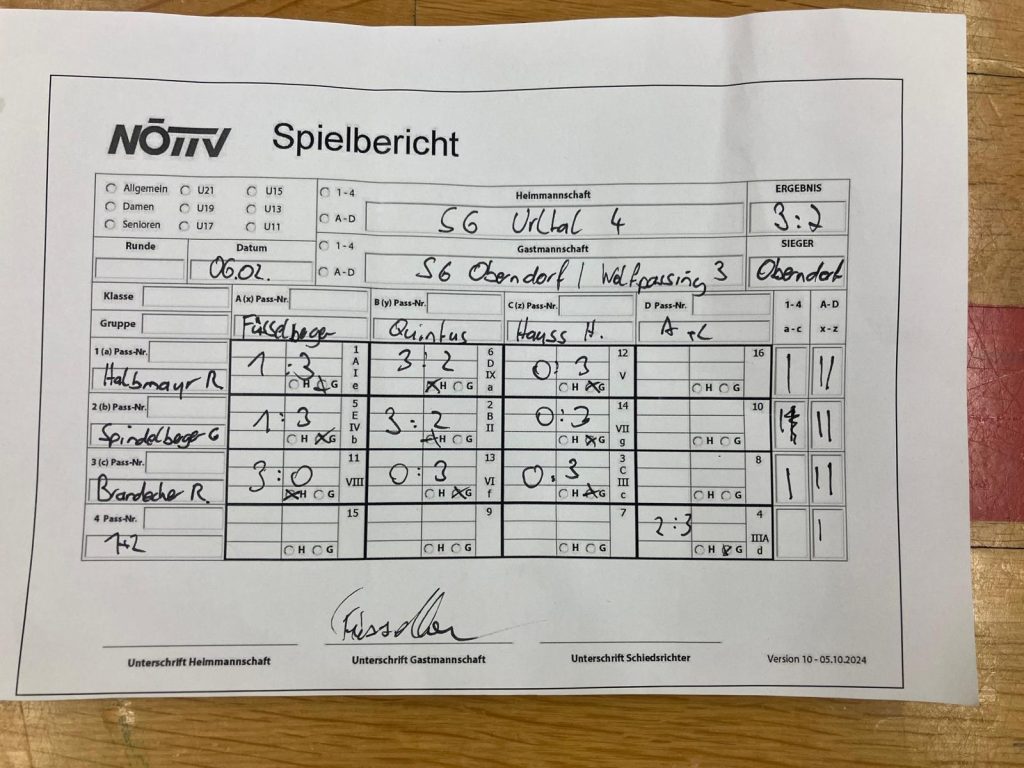 NÖTTV Spielbericht
Allgemein U21 U15
Damen U19 U13
Senioren U17 U11
1-4
A-D
Heimmannschaft
SG Urltal 4
ERGEBNIS
3:2
Runde Datum
06.02.
1-4
A-D
Gastmannschaft
SG Oberndorf / Wolfpassing 3
SIEGER
Oberndorf
Klasse A (x) Pass-Nr. B (y) Pass-Nr. C (z) Pass-Nr. D Pass-Nr. 1-4 A-D
Gruppe Füsselberger Quintus Hauss H. A+C a-c x-z
1 (a) Pass-Nr.
Halbmayr R
1:3 H G 1 A I e
3:2 H G 6 D IX a
0:3 H G 12 V
H G 16
I II
2 (b) Pass-Nr.
Spindelberger G
1:3 H G 5 E IV b
3:2 H G 2 B II
0:3 H G 14 VII g
H G 10
II
3 (c) Pass-Nr.
3:0 H G 11 VIII
0:3 H G 13 VI f
0:3 H G 3 C III c
H G 8
I II
4 Pass-Nr.
1+2
H G 15
H G 9
H G 7
2:3 H G 4 IIIA d
I
Unterschrift Heimmannschaft Unterschrift Gastmannschaft Unterschrift Schiedsrichter Version 10 - 05.10.2024